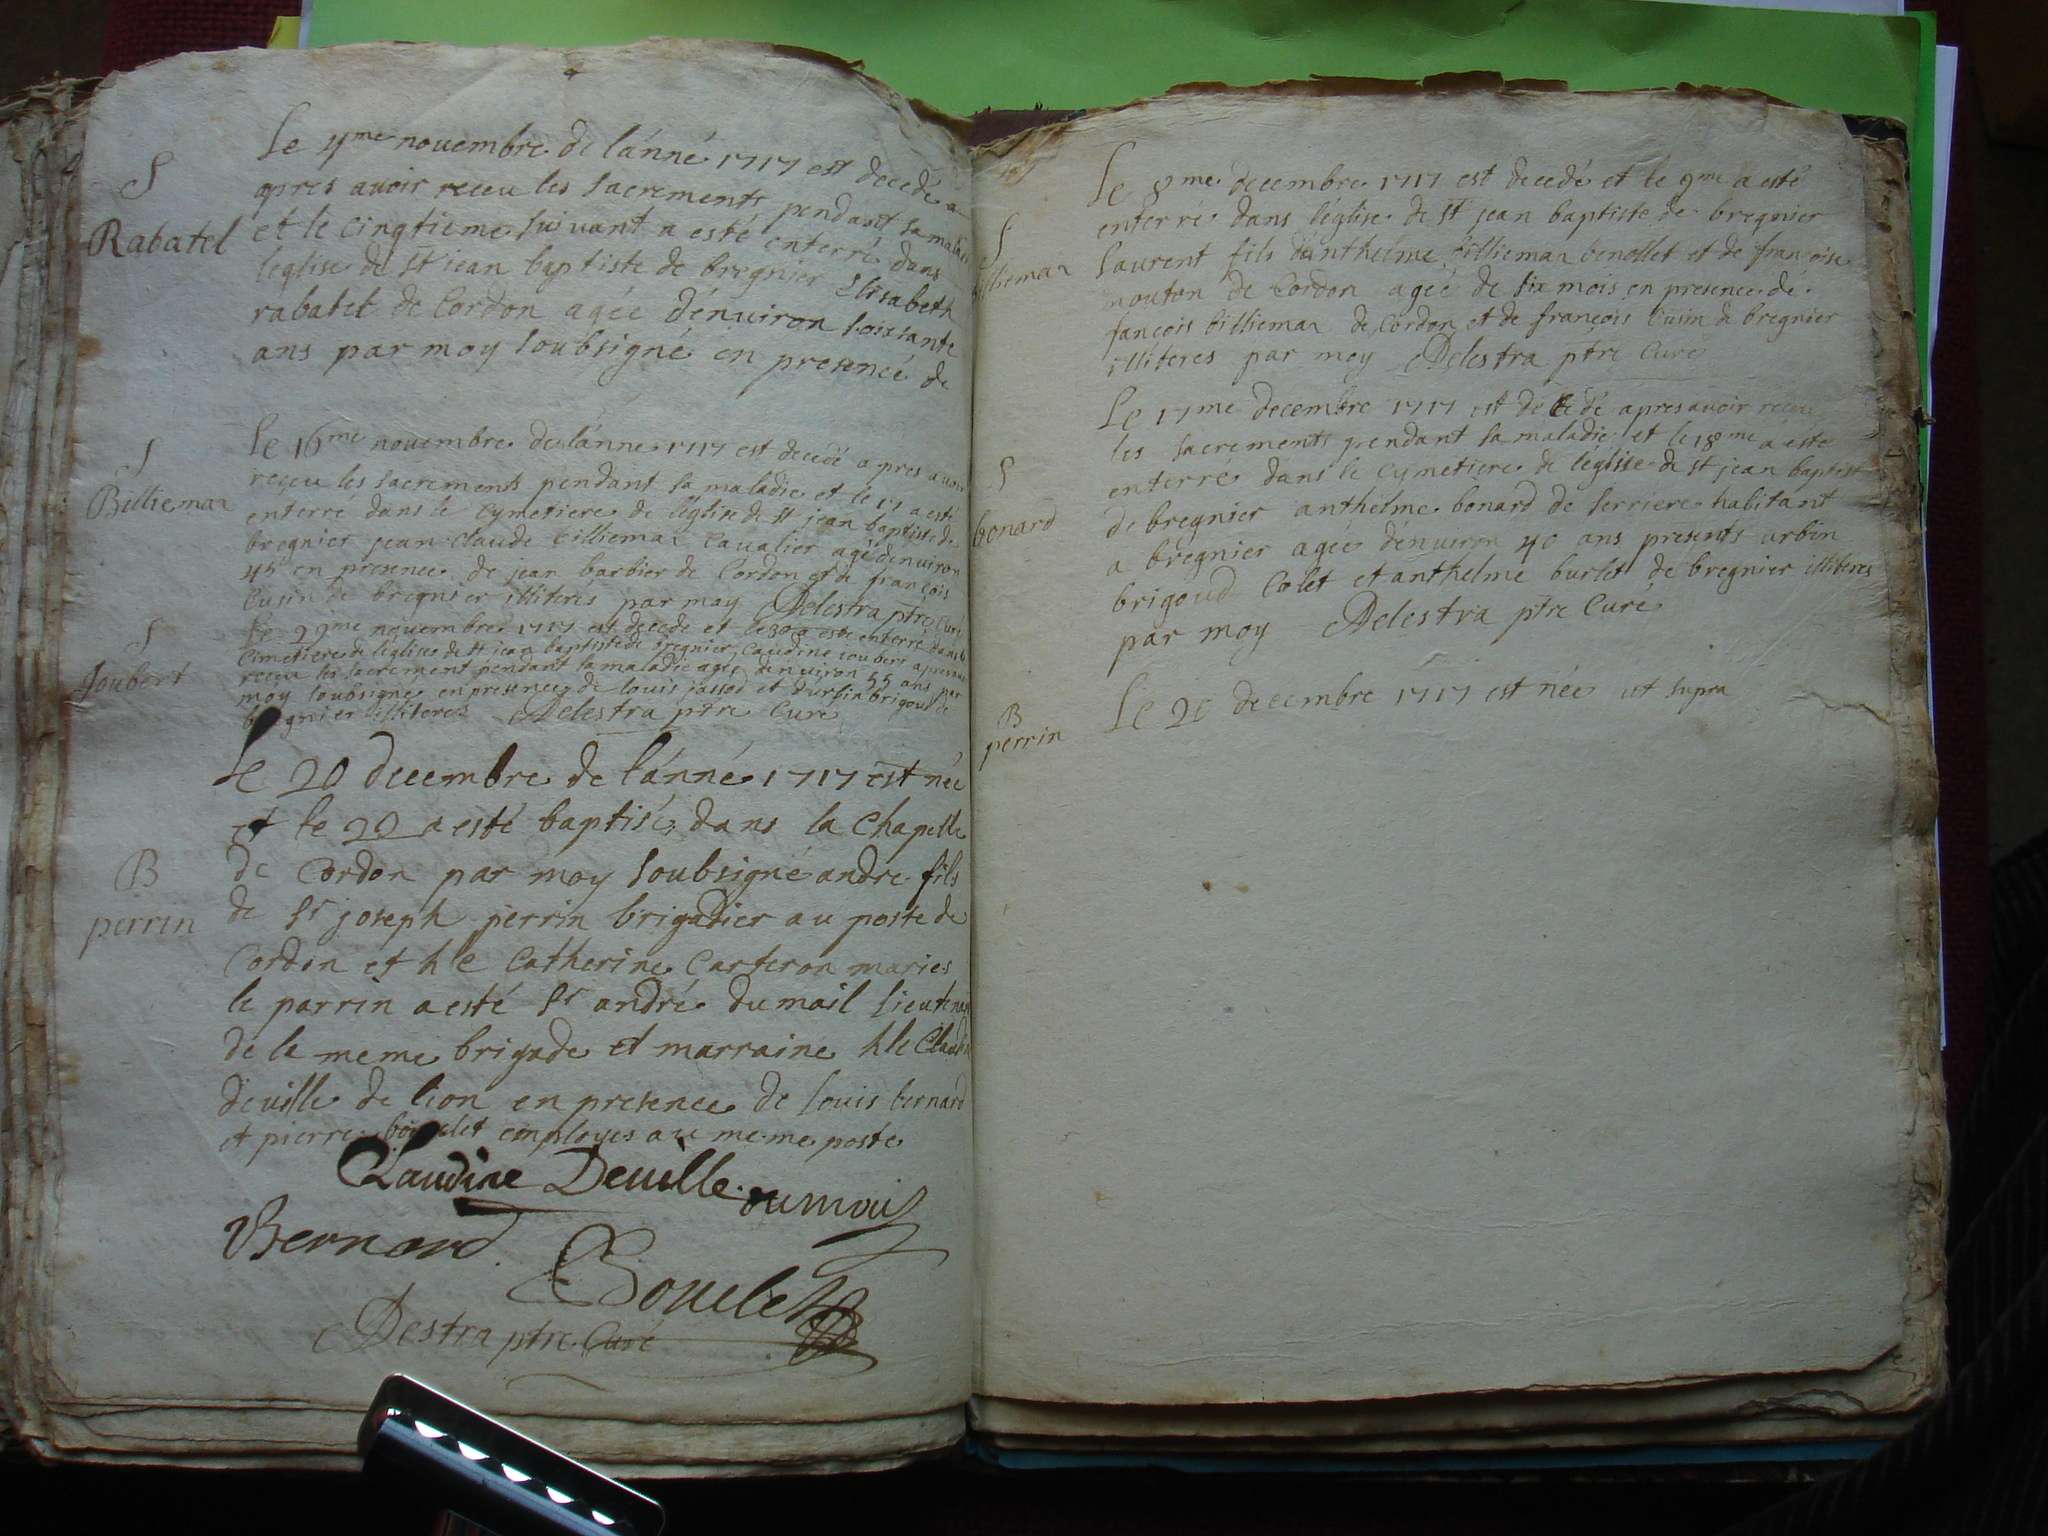 S
Rabatel
Le 4me novembre de l'année 1717 est decedé a
apres avoir receu les sacrements pendant sa maladie
et le cinqtieme suivant a esté enterré dans
leglise de st jean baptiste de bregnier Elisabeth
rabatel de Cordon agée d'enuiron soissante
ans par moy soubsigné en presence de
S
Billiemaz
Le 16me novembre de l'anne 1717 est decedé apres avoir
reçeu les sacrements pendant sa maladie et le 17 a esté
enterré dans le cymetiere de l'église de st jean baptiste de
bregnier jean claude billiemaz Cavalier agé d'enuiron
45 en presence de jean barbier de Cordon et de françois
Cusin de bregnier illiteres par moy Delestra ptre Curé
S
Joubert
Le 29me novembre 1717 est decede et le 30 a este enterré dans le
Cimetiere de l'église de st jean baptiste de bregnier Claudine joubert apres avoir
receu les sacrement pendant sa maladie agée d'enuiron 55 ans par
moy soubsigne en presence de louis jassod et d'urbin brigoud de
bregnier illiteres Delestra ptre Curé
B
perrin
Le 20 decembre de l'année 1717 est née
et le 22 a esté baptisé dans la Chapelle
de Cordon par moy soubsigné andre fils
de Sr joseph perrin brigadier au poste de
Cordon et hle Catherine Carteron maries
le parrin a esté Sr andré dumail lieutenant
de la meme brigade et marraine hle Claudine
deuille de lion en presence de louis bernard
et pierre bouelet employes au meme poste
Claudine Deuille dumail
Bernard Bouelet
Destra ptre Curé
S
billiemaz
Le 8me decembre 1717 est decedé et le 9me a esté
enterré dans l'église de st jean baptiste de bregnier
laurent fils d'anthelme billiemaz benollet et de françoise
mouton de Cordon agée de six mois en presence de
fançois billiemaz de Cordon et de françois Cusin de bregnier
illiteres par moy Delestra ptre Curé
S
bonard
Le 17me decembre 1717 est decedé apres avoir receu
les sacrements pendant sa maladie et le 18me a este
enterré dans le cymetiere de l'église de st jean baptist
de bregnier anthelme bonard de serriere habitant
a bregnier agée d'enuiron 40 ans presents urbin
brigoud Colet et anthelme burlet de bregnier illiteres
par moy Delestra ptre Curé
B
perrin
Le 20 decembre 1717 est née ut supra